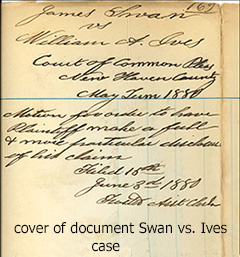 167
James Swan
vs
William A. Ives
Court of Common Pleas
New Haven County
May Term 1880
Motion for order to have
Plaintiff make a full
& more particular disclosure
of his claim
Filed 15th
June 3d 1880
Asst Clerk
cover of document Swan vs. Ives
case